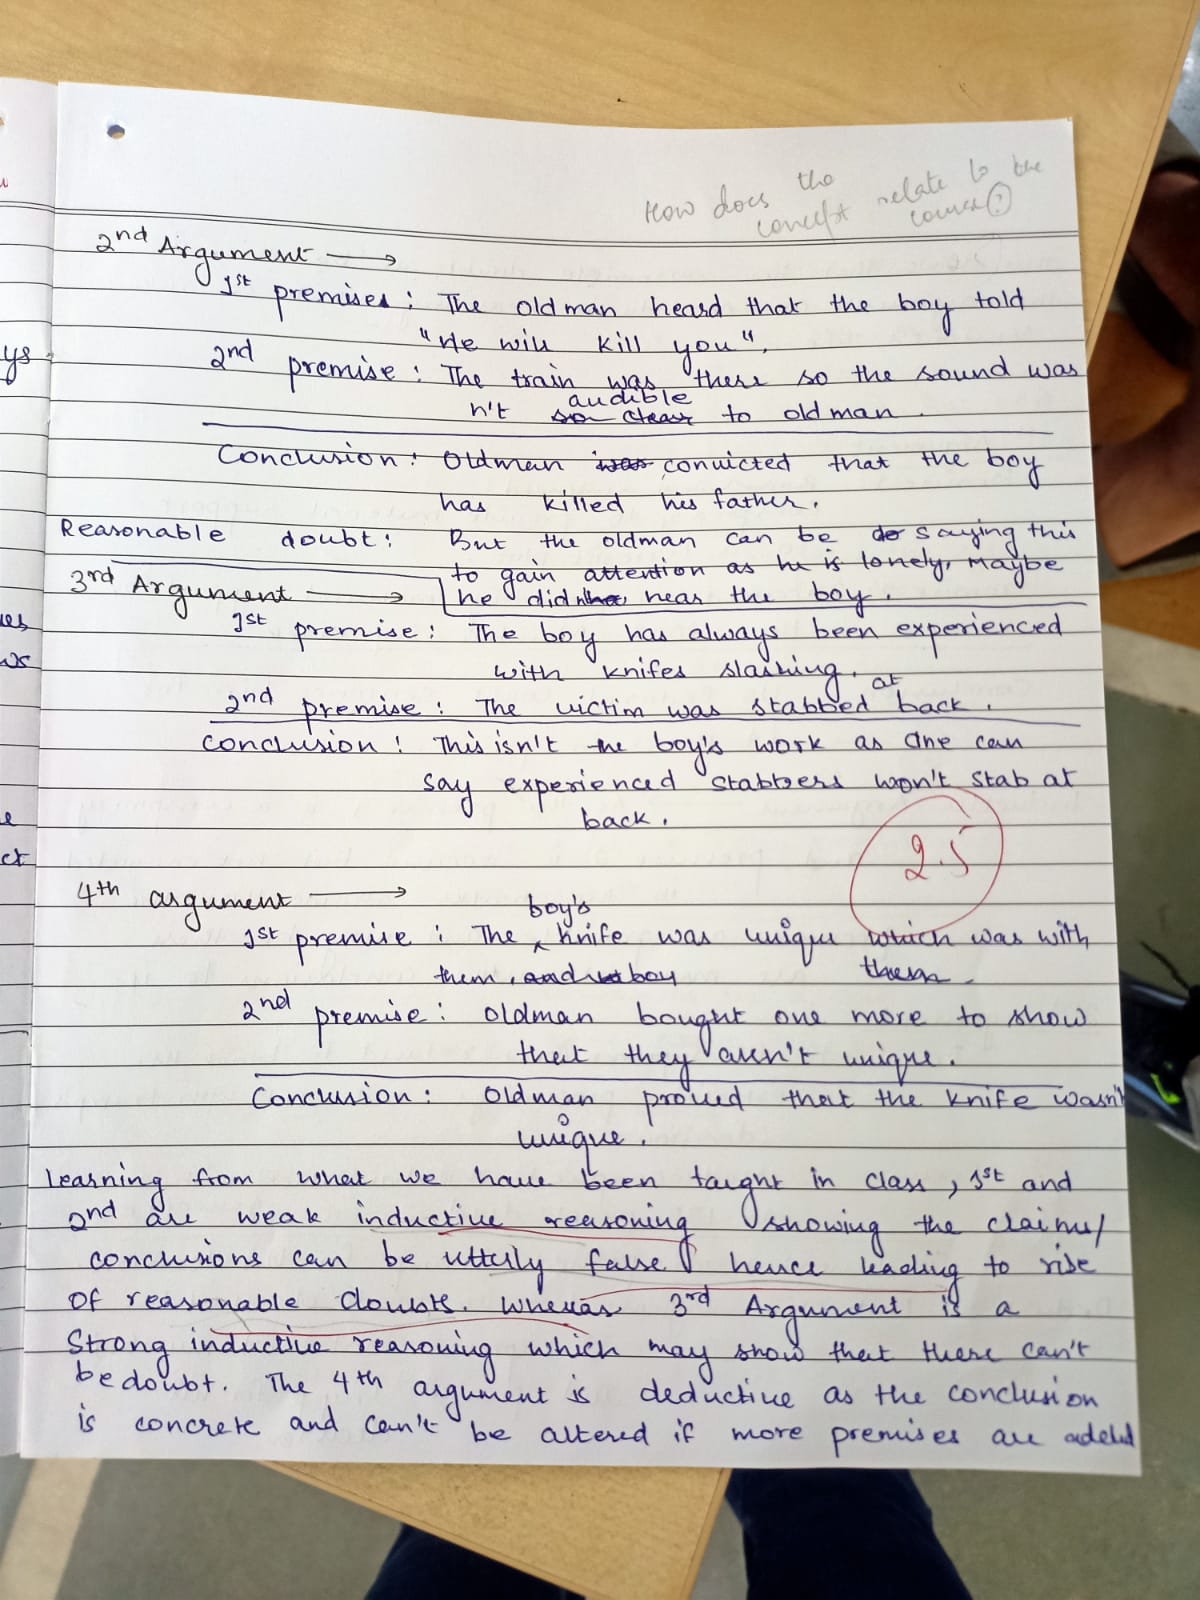 How does the concept relate to the course?
2nd Argument →
1st premises: The oldman heard that the boy told
"He will kill you".
2nd premise: The train was there so the sound was
n't so clear audible to oldman.
Conclusion: Oldman was convicted that the boy
has killed his father.
Reasonable doubt: But the oldman can be do saying this
to gain attention as he is lonely, Maybe
3rd Argument →
he didn near the boy.
1st premise: The boy has always been experienced
with knifes slashing.
2nd premise: The victim was stabbed at back.
Conclusion: This isn't the boy's work as one can
say experienced stabbers won't stab at
back.
2.5
4th argument →
1st premise: The boy's knife was unique which was with
them, and boy them.
2nd premise: oldman bought one more to show
that they aren't unique.
Conclusion: Oldman proved that the knife wasn't
unique.
Learning from what we have been taught in class, 1st and
2nd are weak inductive reasoning showing the claims/
conclusions can be utterly false hence leading to rise
of reasonable doubts. Whereas 3rd Argument is a
Strong inductive reasoning which may show that there can't
be doubt. The 4th argument is deductive as the conclusion
is concrete and can't be altered if more premises are added
ys
ws
e
ct